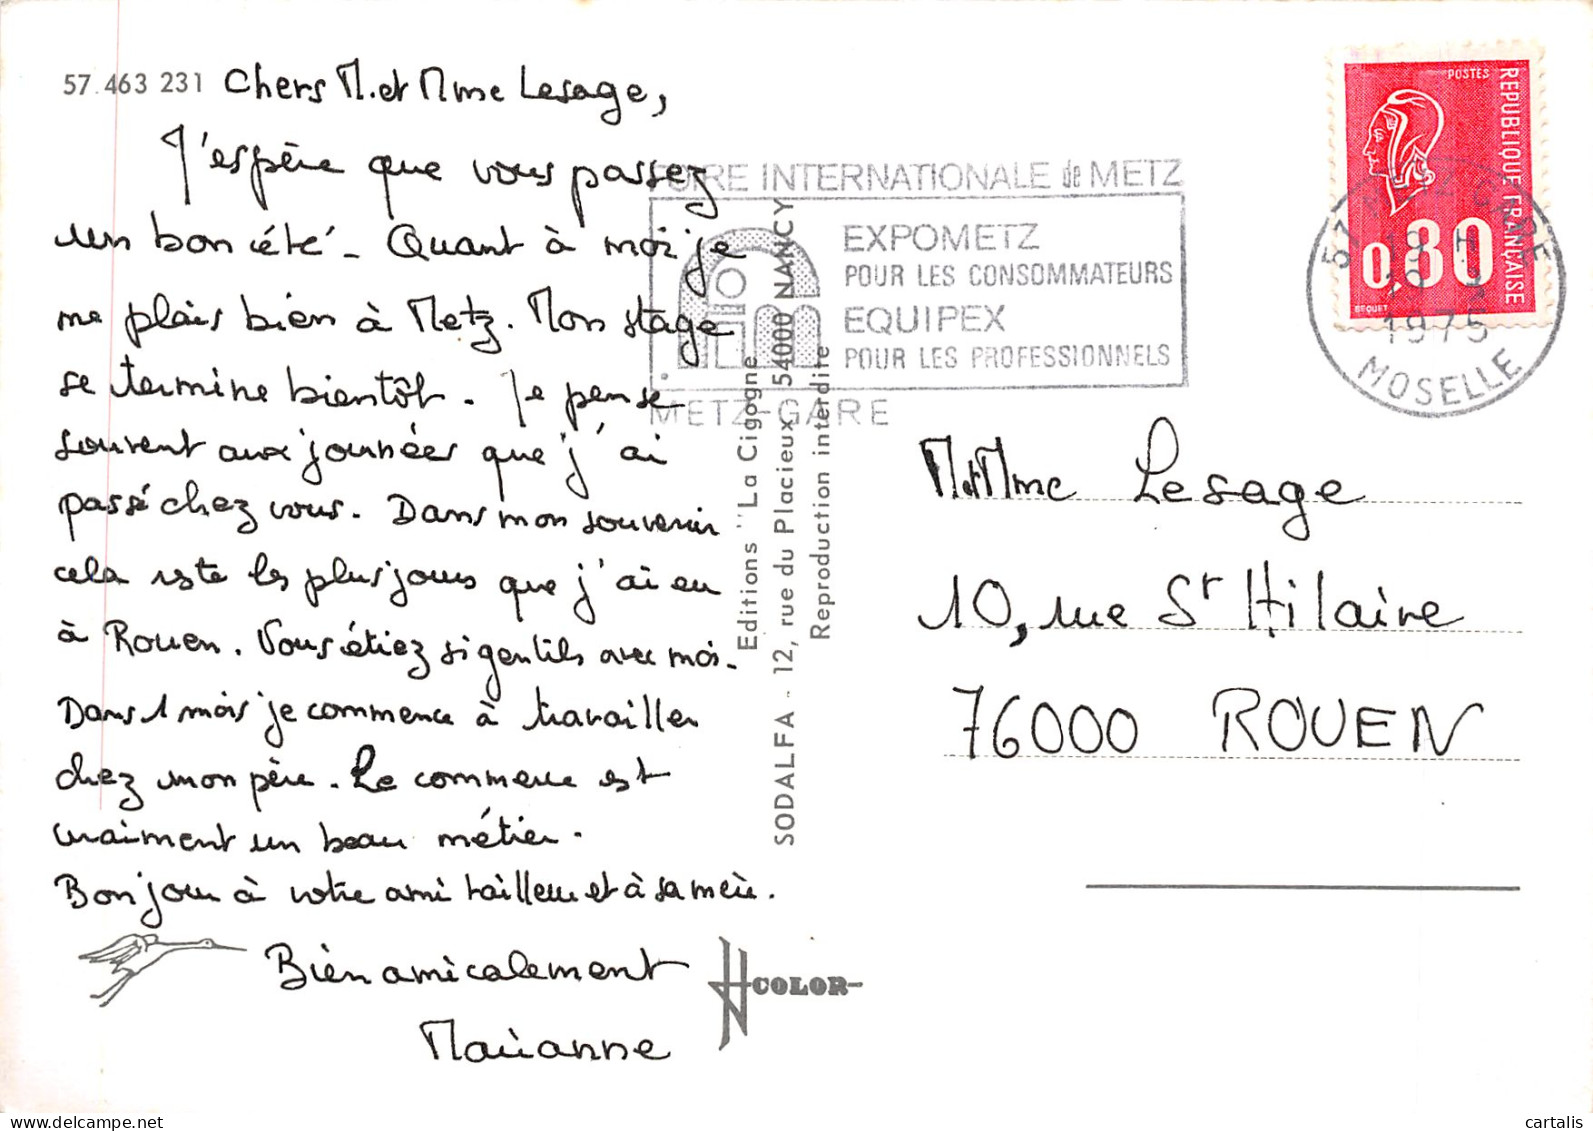 57.463 231
Chers M. et Mme Lesage,
J'espère que vous passez
un bon été - Quant à moi je
me plais bien à Metz. Mon stage
se termine bientôt. Je pense
souvent aux journées que j'ai
passé chez vous. Dans mon souvenir
cela reste les plus jours que j'ai eu
à Rouen. Vous étiez si gentils avec moi.
Dans 1 mois je commence à travailler
chez mon père. Le commerce est
vraiment un beau métier.
Bonjour à votre ami tailleur et à sa mère.
Bien amicalement
Marianne
COLOR
Editions "La Cigogne
SODALFA - 12, rue du Placieux 54000 NANCY
Reproduction interdite
FOIRE INTERNATIONALE de METZ
EXPOMETZ
POUR LES CONSOMMATEURS
EQUIPEX
POUR LES PROFESSIONNELS
METZ GARE
POSTES
REPUBLIQUE FRANÇAISE
0,80
BEQUET
57 METZ GARE
19 H
1975
MOSELLE
M. et Mme Lesage
10, rue St Hilaire
76000 ROUEN
cartalis